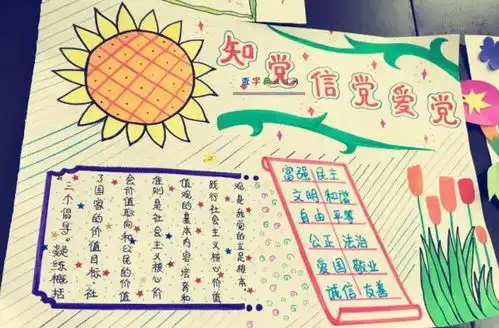 知党信党爱党
查字典
"三个倡导"。凝练概括
了国家的价值目标、社
会价值取向和公民的价值
准则是社会主义核心价
值观的基本内容培育和
践行社会主义核心价值
观是我党的立足根本。
富强 民主
文明 和谐
自由 平等
公正 法治
爱国 敬业
诚信 友善